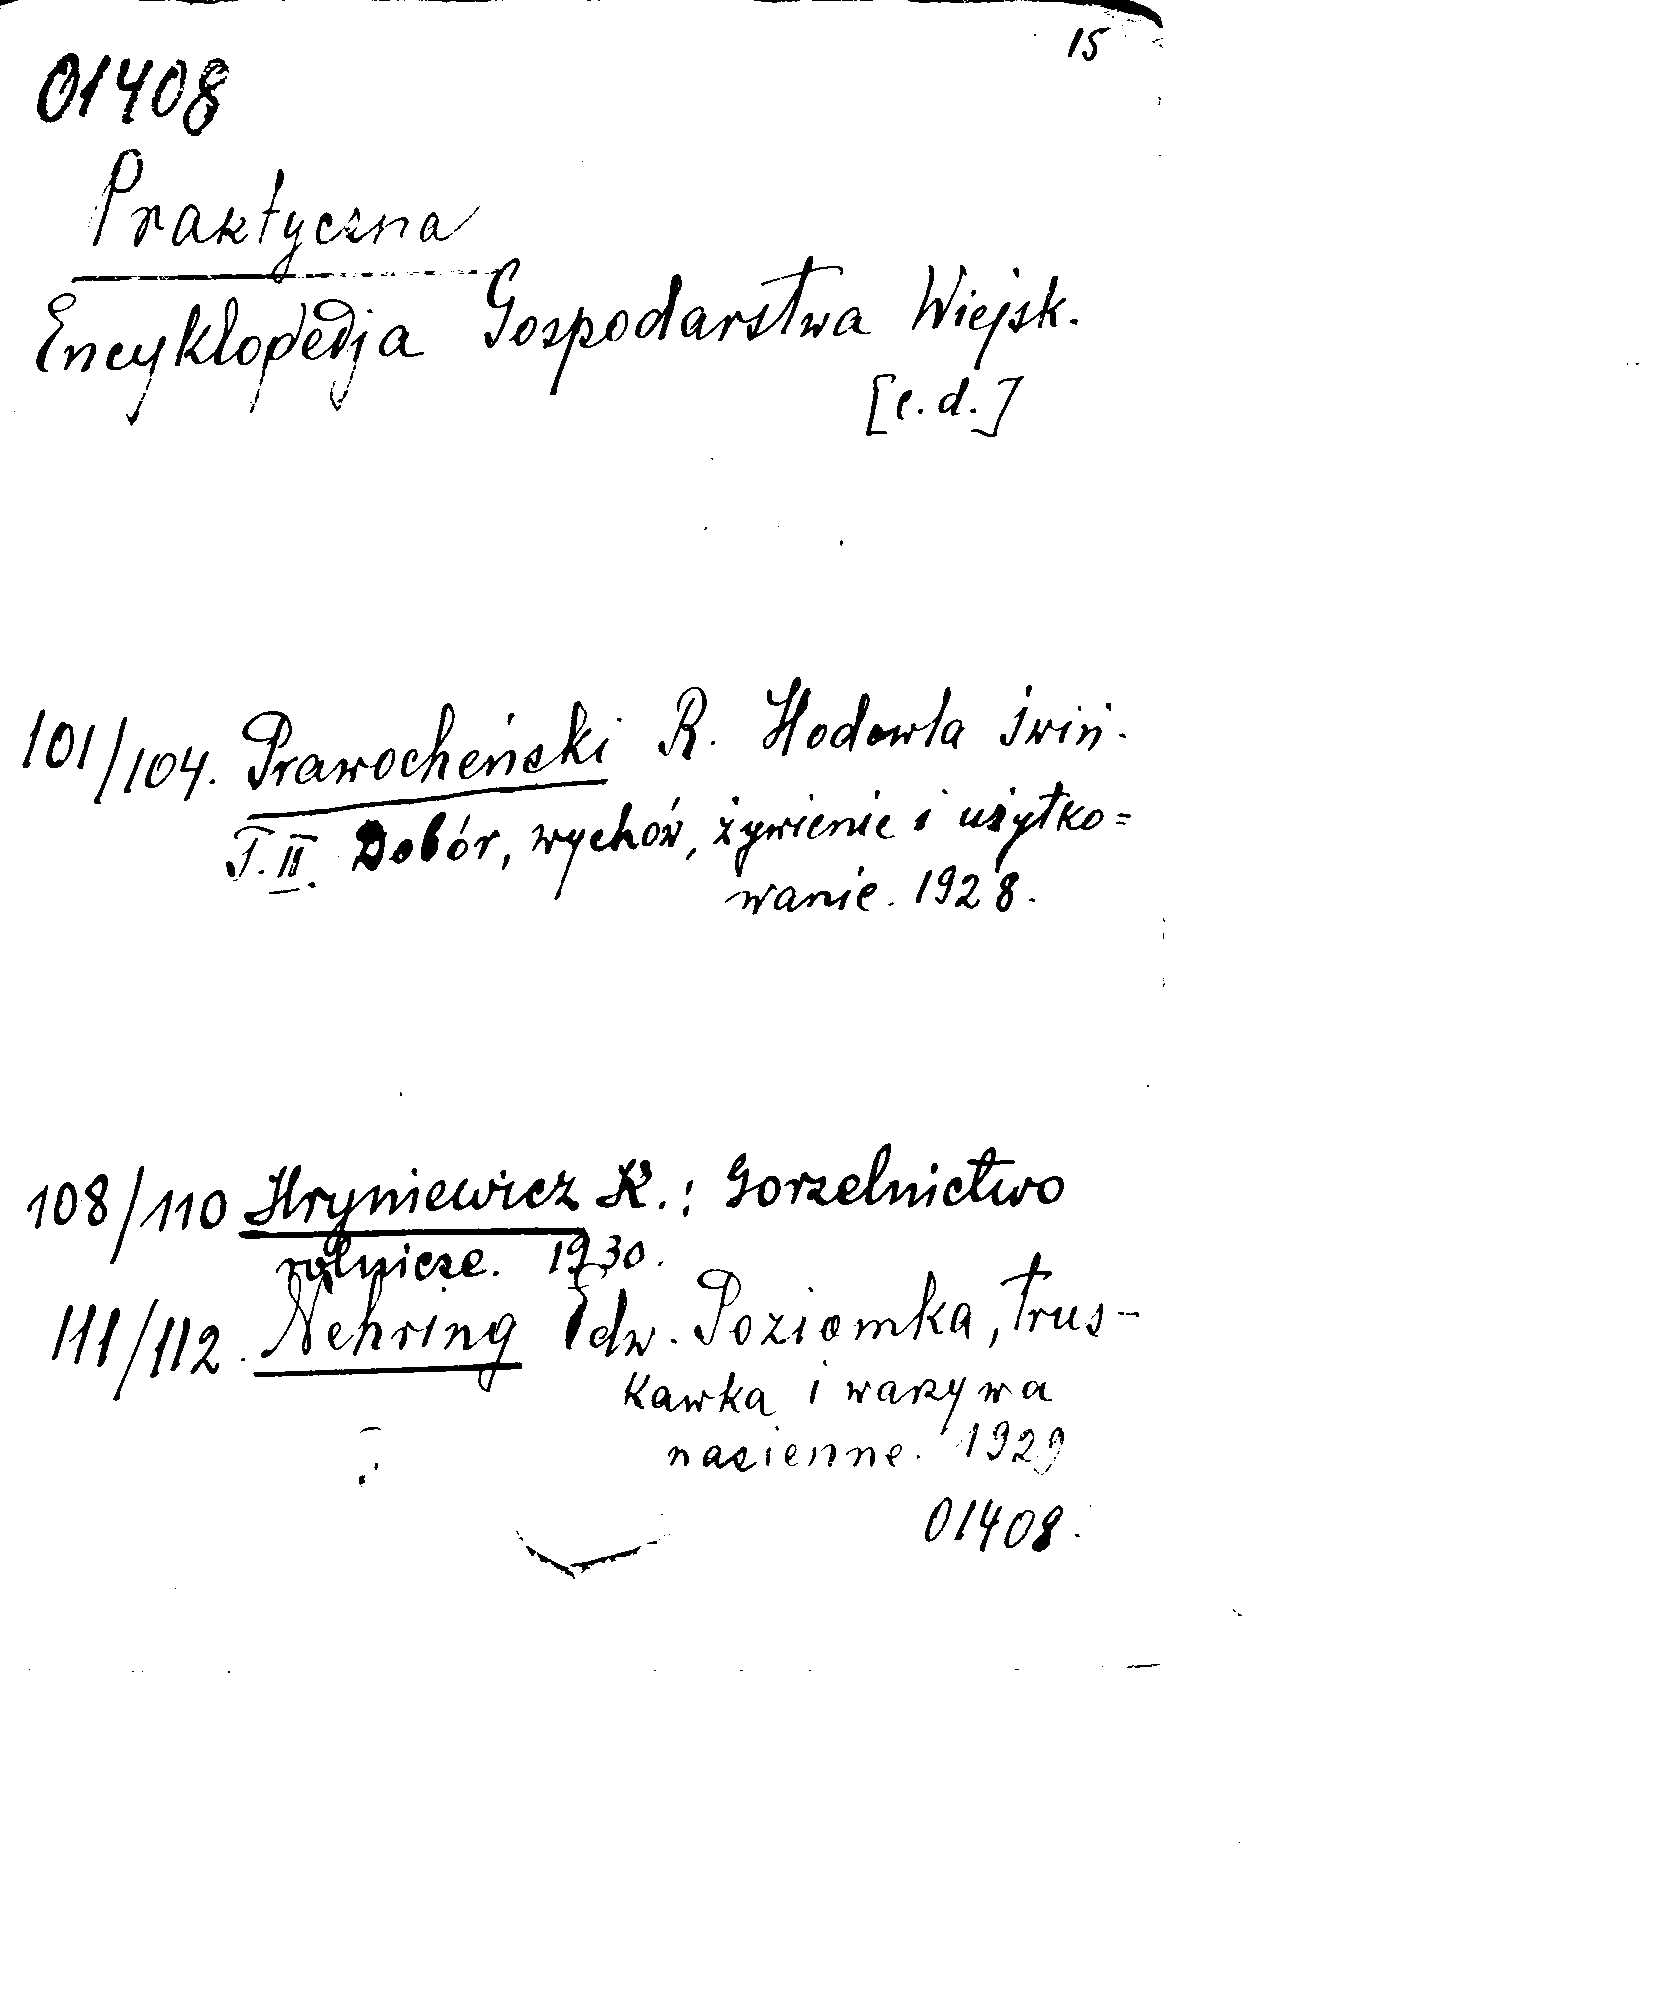 15
01408
Praktyczna
Encyklopedja Gospodarstwa Wiejsk.
[c.d.]
101/104. Prawocheński R. Hodowla świń.
T. II. Dobór, wychów, żywienie i użytko=
wanie. 1928.
108/110 Hryniewicz K.: Gorzelnictwo
rolnicze. 1930.
111/112. Nehring Edw. Poziomka, trus-
kawka i warzywa
nasienne. 1929
01408.